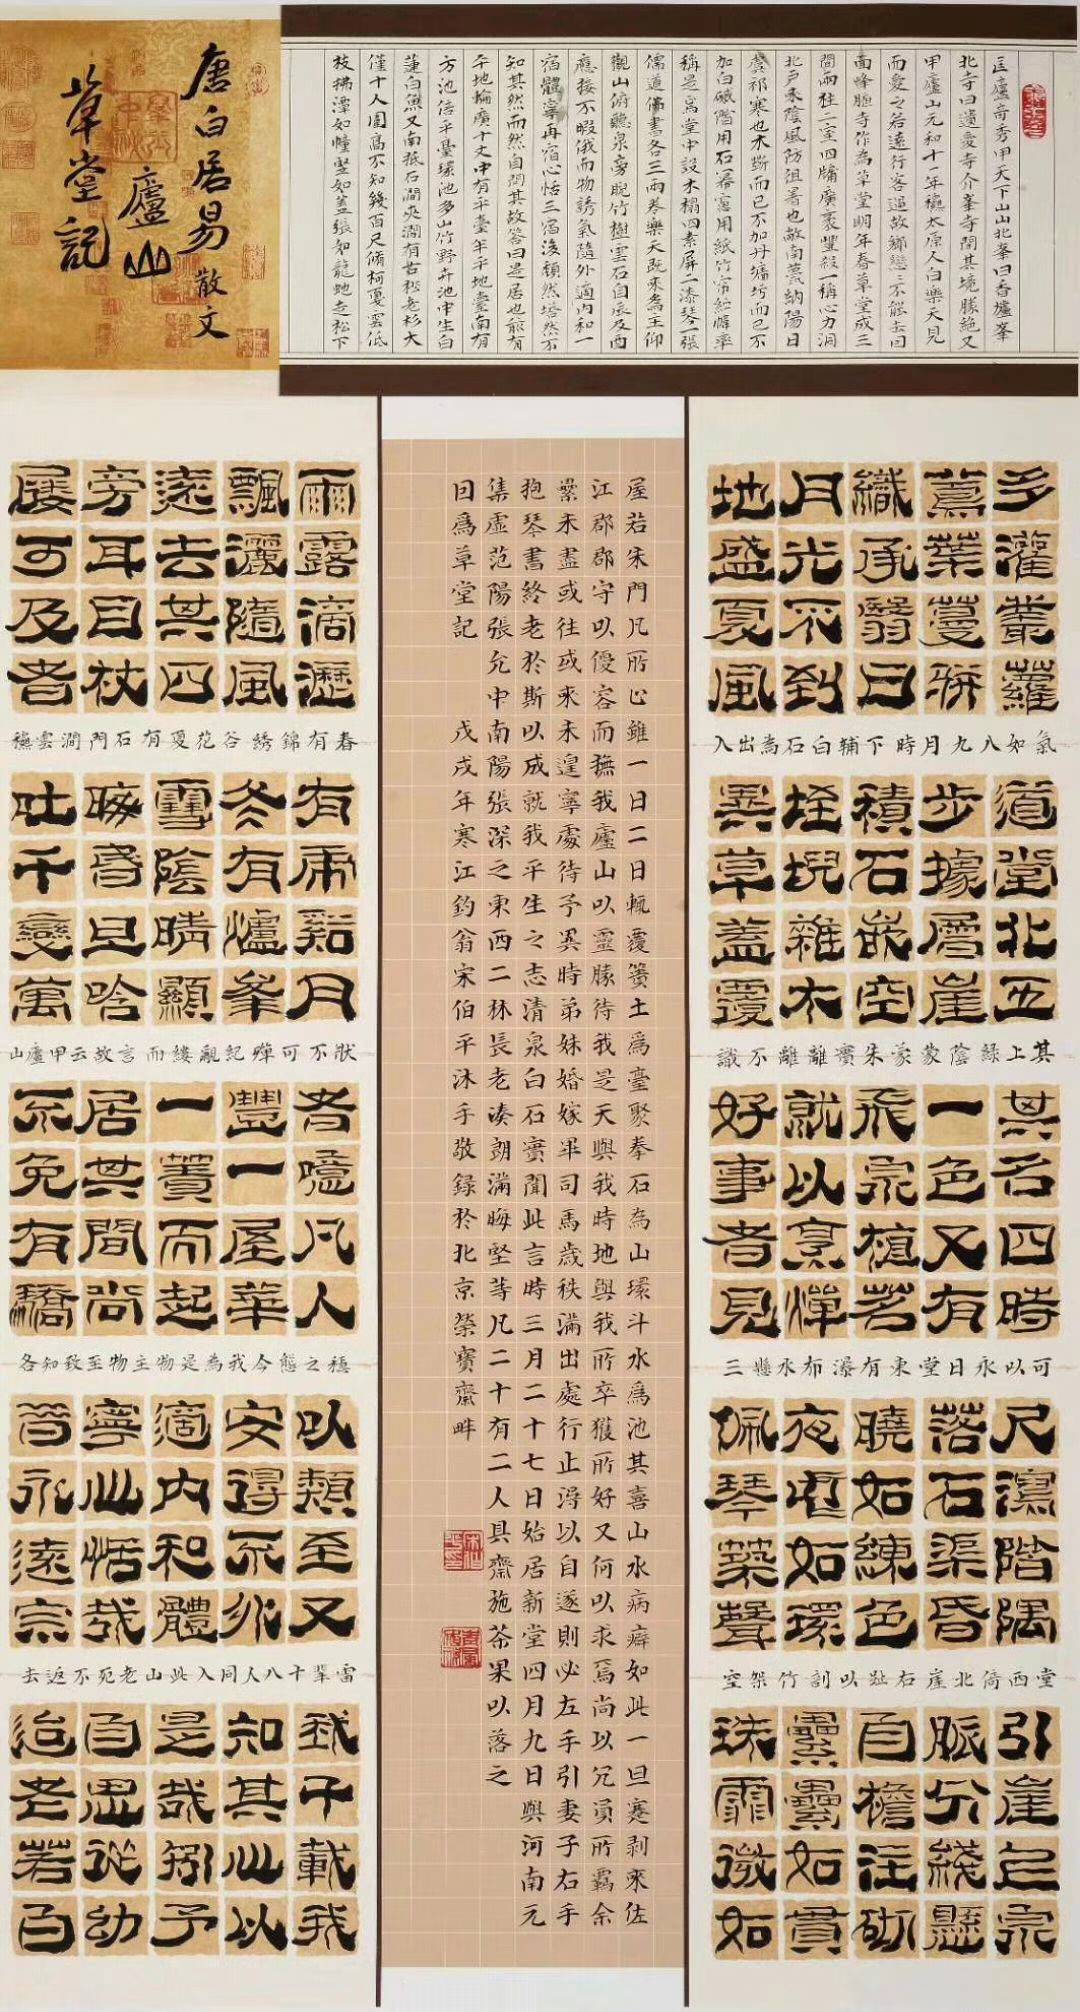 唐白居易散文
廬山
草堂記
匡廬奇秀甲天下山山北峯曰香爐峯
北寺曰遺愛寺介峯寺間其境勝絕又
甲廬山元和十年穐太原人白樂天見
而愛之若遠行客過故鄉戀戀不能去因
面峰腋寺作為草堂明年春草堂成三
間兩柱二室四牖廣袤豐殺一稱心力洞
北戶來陰風防徂暑也敞南甍納陽日
虞祁寒也木斲而已不加丹墻圬而已不
加白磩階用石冪窗用紙竹帘紵幃率
稱是焉堂中設木榻四素屏二漆琴一張
儒道佛書各三兩卷樂天既來為主仰
觀山俯聽泉旁睨竹樹雲石自辰及酉
應接不暇俄而物誘氣隨外適內和一
宿體寧再宿心恬三宿後頹然嗒然不
知其然而然自問其故答曰是居也前有
平地輪廣十丈中有平臺半平地臺南有
方池倍平臺環池多山竹野卉池中生白
蓮白魚又南抵石澗夾澗有古松老杉大
僅十人圍高不知幾百尺脩柯戛雲低
枝拂潭如幢竪如蓋張如龍蛇走松下
多灌叢蘿
蔦葉蔓駢
織承翳日
月光不到
地盛夏風
氣如八九月時下鋪白石為出入
道堂北五
步據層崖
積石嵌空
垤堄雜木
異草蓋覆
其上綠陰蒙蒙朱實離離不識
其名四時
一色又有
飛泉植茗
就以烹燀
好事者見
可以永日堂東有瀑布水懸三
尺瀉階隅
落石渠昏
曉如練色
夜中如環
佩琴築聲
堂西倚北崖右趾以剖竹架空
引崖上泉
脈分綫懸
自檐注砌
纍纍如貫
珠霏微如
雨露滴瀝
飄灑隨風
遠去其四
旁耳目杖
屨可及者
春有錦綉谷花夏有石門澗雲穐
有虎谿月
冬有爐峯
雪陰晴顯
晦昏旦吟
吐千變萬
狀不可殫紀覼縷而言故云甲廬山
者噫凡人
豐一屋華
一簣而起
居其間尚
不免有驕
穩之態今我為是物主物至致知各
以類至又
安得不外
適內和體
寧心恬哉
昔永遠宗
雷輩十八人同入此山老死不返去
我千載我
知其心以
是哉矧予
自思從幼
迨老若白
屋若朱門凡所止雖一日二日輒覆簣土為臺聚拳石為山環斗水為池其喜山水病癖如此一旦蹇剝來佐
江郡郡守以優容而撫我廬山以靈勝待我是天與我時地與我所卒獲所好又何以求焉尚以冗員所羈余
纍未盡或往或來未遑寧處待予異時弟妹婚嫁畢司馬歲秩滿出處行止得以自遂則必左手引妻子右手
抱琴書終老於斯以成就我平生之志清泉白石實聞此言時三月二十七日始居新堂四月九日與河南元
集虛范陽張允中南陽張深之東西二林長老湊朗滿晦堅等凡二十有二人具齋施茶果以落之
因為草堂記 戊戌年寒江釣翁宋伯平沐手敬錄於北京榮寶齋畔